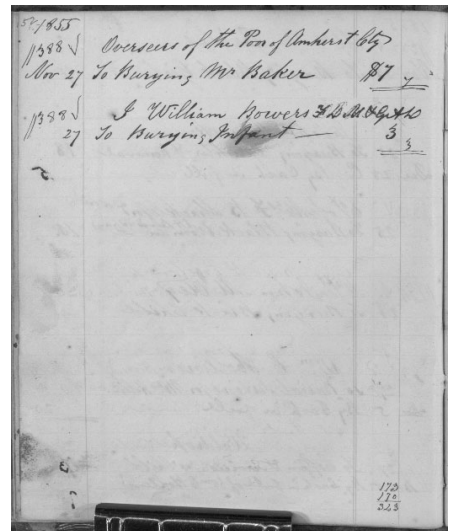 1855
388 Overseers of the Poor of Amherst Cty
Nov 27 To Burying Mr Baker $7 7
388 J William Bowers
27 To Burying Infant — 3 3
173
170
323